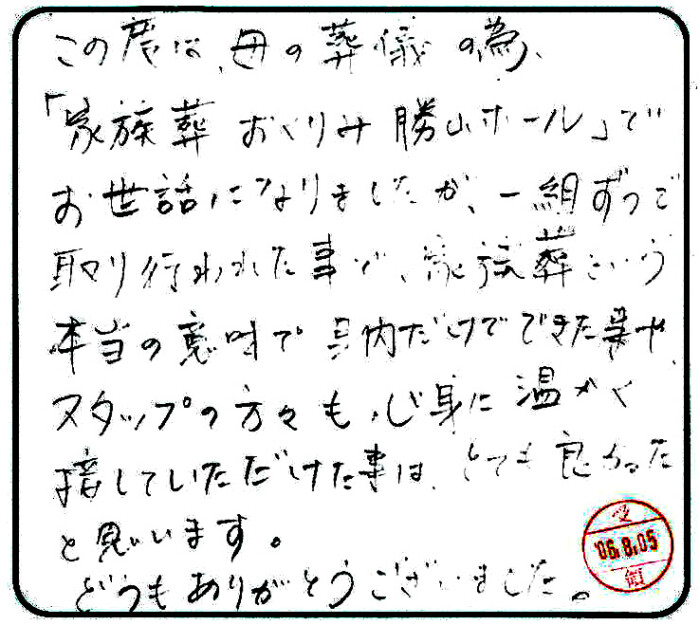 この度は、母の葬儀の為、
「家族葬 おくりみ 勝山ホール」で
お世話になりましたが、一組ずつで
取り行われた事で、家族葬という
本当の意味で身内だけでできた事や
スタップの方々も心身に温かく
接していただけた事は、とても良かった
と思います。
どうもありがとうございました。
受
'06.8.05
領